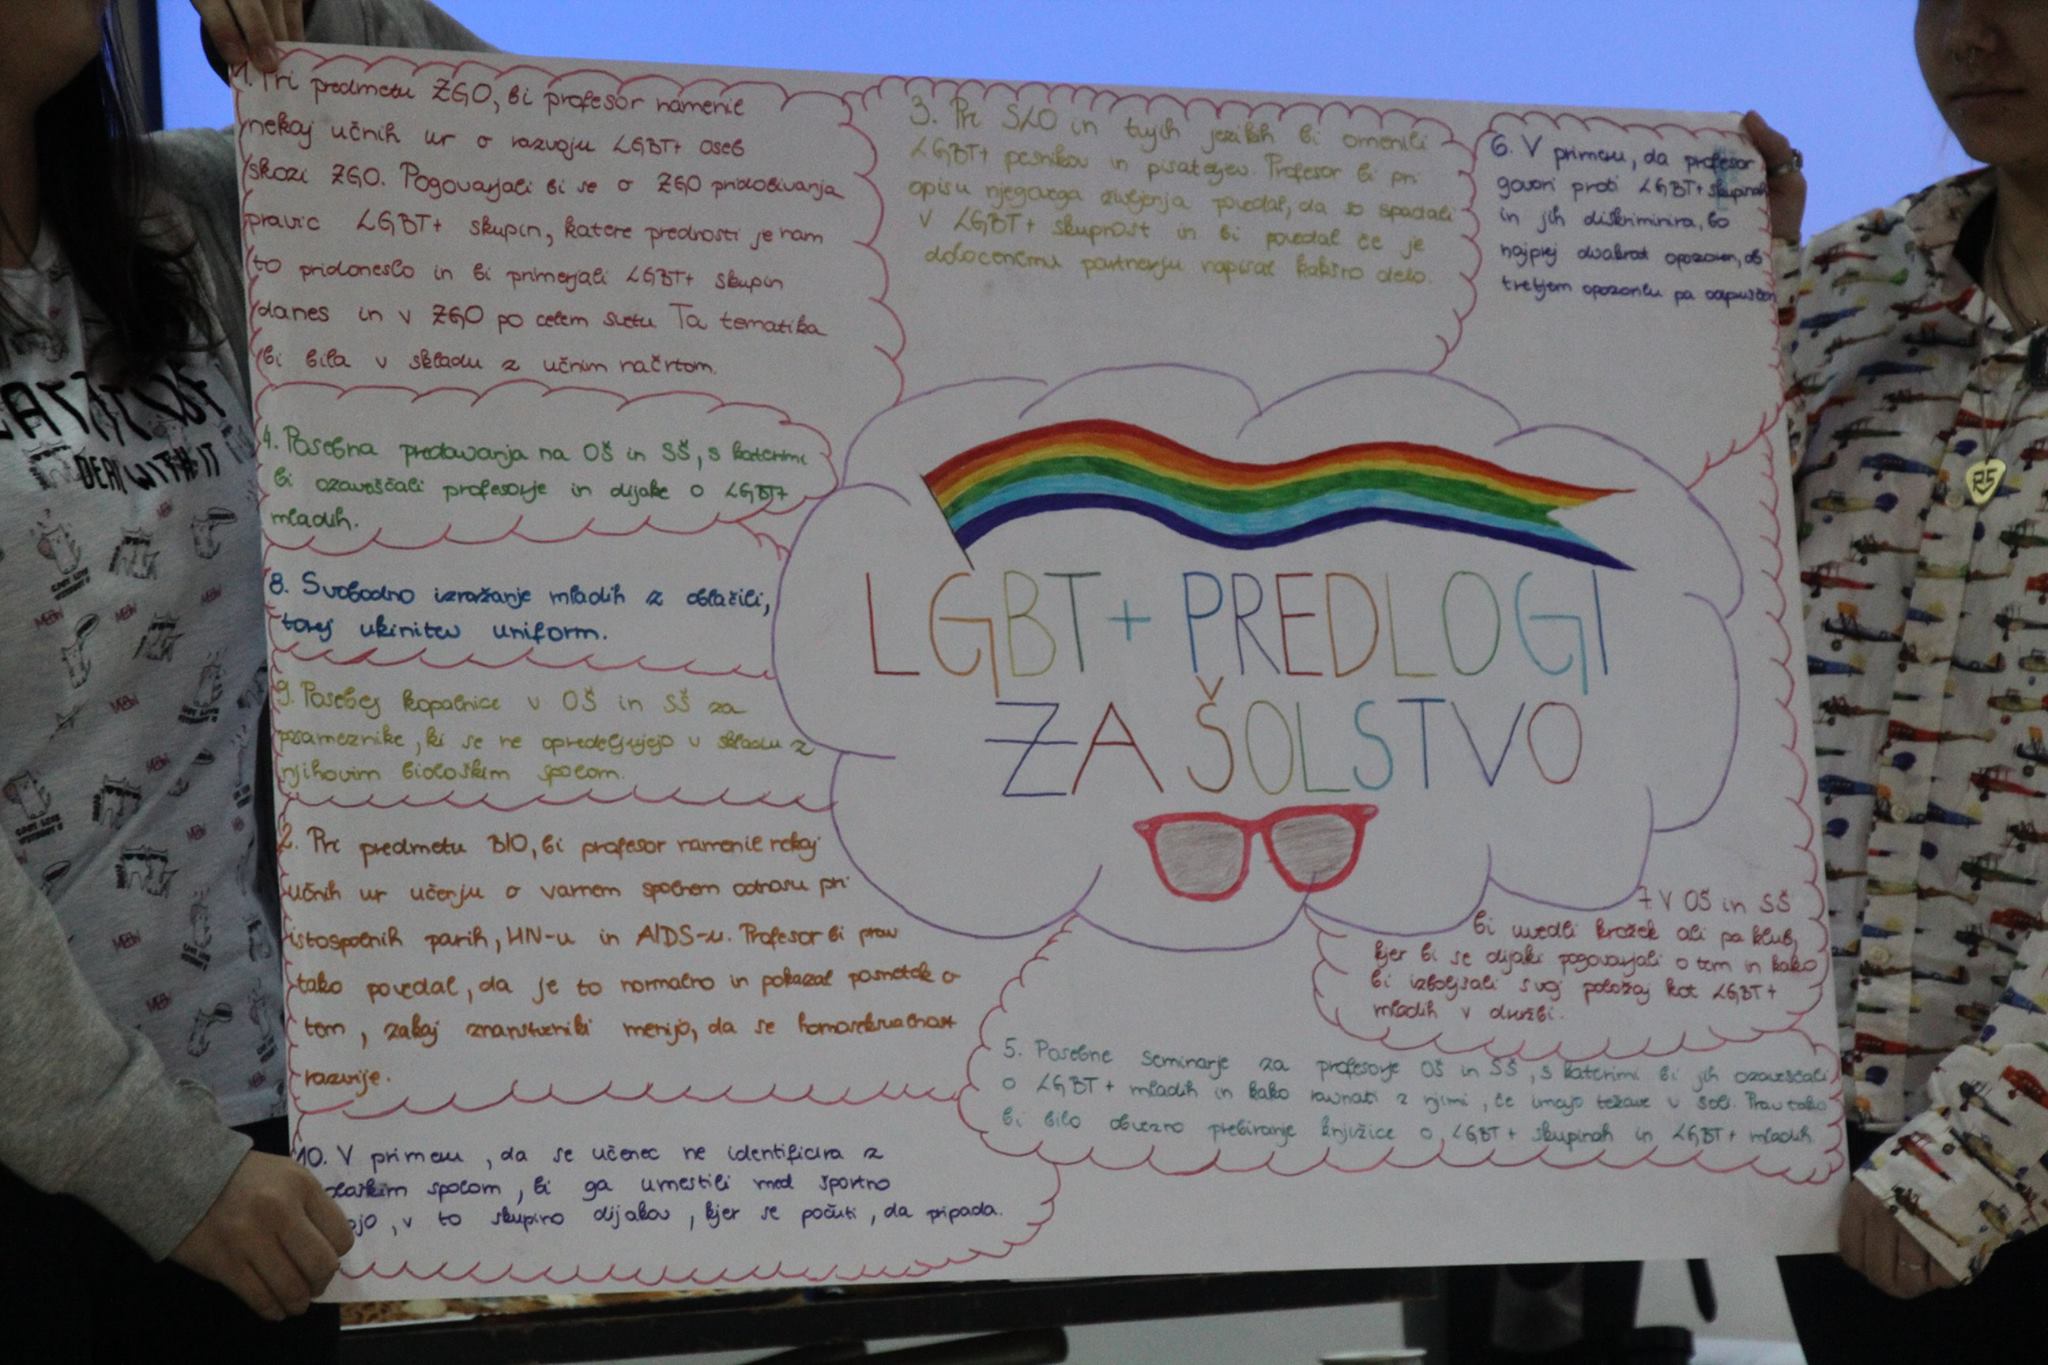 1. Pri predmetu ZGO, bi profesor namenil
nekaj učnih ur o razvoju LGBT+ oseb
skozi ZGO. Pogovarjali bi se o ZGO pridobivanja
pravic LGBT+ skupin, katere prednosti je nam
to pridoneslo in bi primerjali LGBT+ skupin
danes in v ZGO po celem svetu Ta tematika
bi bila v skladu z učnim načrtom.
3. Pri SLO in tujih jezikih bi omenili
LGBT+ pesnikov in pisateljev. Profesor bi pri
opisu njegovega življenja povedal, da so spadali
v LGBT+ skupnost in bi povedal če je
določenemu partnerju napisal kakšno delo.
6. V primeru, da profesor
govori proti LGBT+ skupinah
in jih diskriminira, bo
najprej dvakrat opozorjen, ob
tretjem opozorilu pa odpuščen
4. Posebna predavanja na OŠ in SŠ, s katerimi
bi ozaveščali profesorje in dijake o LGBT+
mladih.
8. Svobodno izražanje mladih z oblačili,
torej ukinitev uniform.
9. Posebej kopalnice v OŠ in SŠ za
posameznike, ki se ne opredeljujejo v skladu z
njihovim biološkim spolom.
LGBT+ PREDLOGI
ZA ŠOLSTVO
2. Pri predmetu BIO, bi profesor namenil nekaj
učnih ur učenju o varnem spolnem odnosu pri
istospolnih parih, HIV-u in AIDS-u. Profesor bi prav
tako povedal, da je to normalno in pokazal posnetek o
tem, zakaj znanstveniki menijo, da se homoseksualnost
razvije.
7 V OŠ in SŠ
bi uvedli krožek ali pa klub,
kjer bi se dijaki pogovarjali o tem in kako
bi izboljšali svoj položaj kot LGBT+
mladih v družbi.
5. Posebne seminarje za profesorje OŠ in SŠ, s katerimi bi jih ozaveščali
o LGBT+ mladih in kako ravnati z njimi, če imajo težave v šoli. Prav tako
bi bilo obvezno prebiranje knjižice o LGBT+ skupinah in LGBT+ mladih.
10. V primeru, da se učenec ne identificira z
spolom, bi ga umestili med športno
, v to skupino dijakov, kjer se počuti, da pripada.
DEAL WITH IT
MEOW
R5